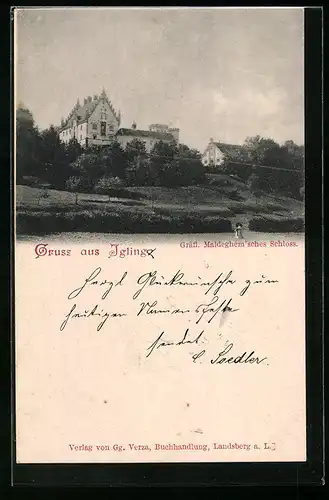 Gruss aus Igling
Gräfl. Maldeghem'sches Schloss.
Herzl Glückwünsche zum
heutigen Namensfeste
sendet
C. Soedler
Verlag von Gg. Verza, Buchhandlung, Landsberg a. L.